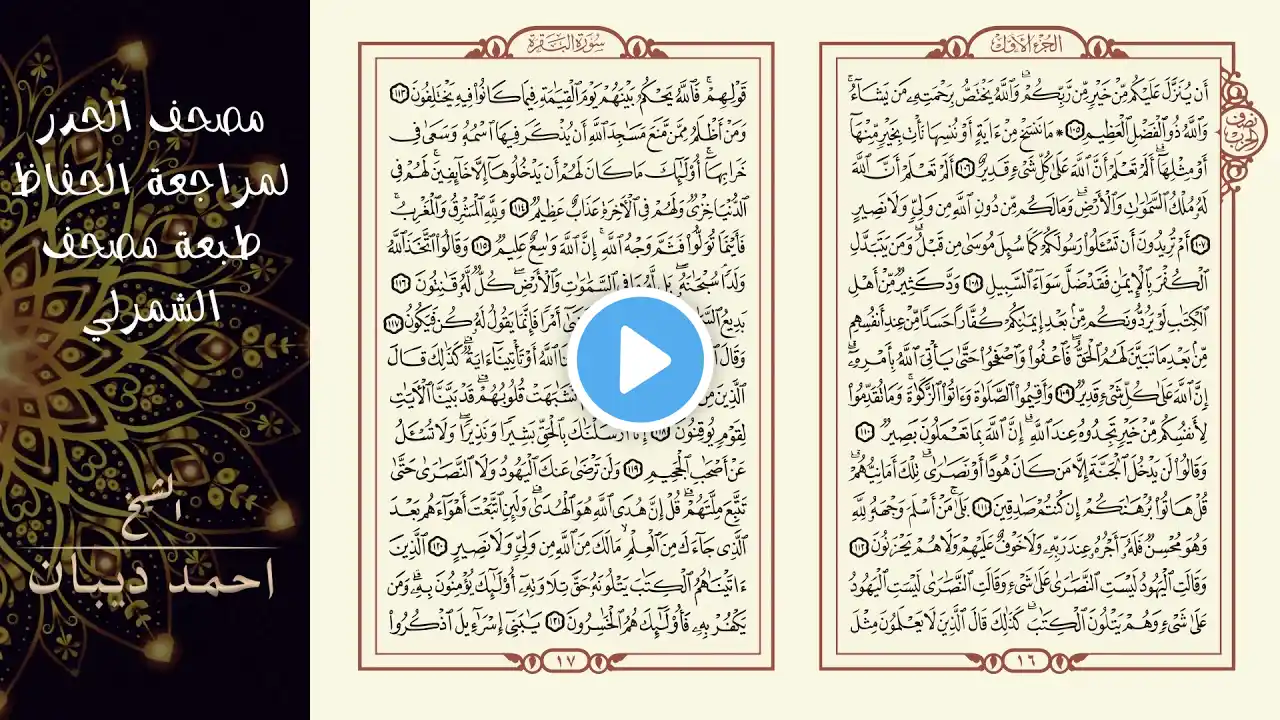 مصحف الحدر
لمراجعة الحفاظ
طبعة مصحف
الشمرلي
الشيخ
احمد ديبان
الجزء الأول
نصف الحزب
أَن يُنَزَّلَ عَلَيْكُم مِّنْ خَيْرٍ مِّن رَّبِّكُمْ وَاللَّهُ يَخْتَصُّ بِرَحْمَتِهِ مَن يَشَاءُ
وَاللَّهُ ذُو الْفَضْلِ الْعَظِيمِ ١٠٥ * مَا نَنسَخْ مِنْ ءَايَةٍ أَوْ نُنسِهَا نَأْتِ بِخَيْرٍ مِّنْهَا
أَوْ مِثْلِهَا أَلَمْ تَعْلَمْ أَنَّ اللَّهَ عَلَى كُلِّ شَيْءٍ قَدِيرٌ ١٠٦ أَلَمْ تَعْلَمْ أَنَّ اللَّهَ
لَهُ مُلْكُ السَّمَٰوَٰتِ وَالْأَرْضِ وَمَا لَكُم مِّن دُونِ اللَّهِ مِن وَلِيٍّ وَلَا نَصِيرٍ
١٠٧ أَمْ تُرِيدُونَ أَن تَسْـَٔلُوا رَسُولَكُمْ كَمَا سُئِلَ مُوسَىٰ مِن قَبْلُ وَمَن يَتَبَدَّلِ
الْكُفْرَ بِالْإِيمَٰنِ فَقَدْ ضَلَّ سَوَاءَ السَّبِيلِ ١٠٨ وَدَّ كَثِيرٌ مِّنْ أَهْلِ
الْكِتَٰبِ لَوْ يَرُدُّونَكُم مِّنۢ بَعْدِ إِيمَٰنِكُمْ كُفَّارًا حَسَدًا مِّنْ عِندِ أَنفُسِهِم
مِّنۢ بَعْدِ مَا تَبَيَّنَ لَهُمُ الْحَقُّ فَاعْفُوا وَاصْفَحُوا حَتَّىٰ يَأْتِيَ اللَّهُ بِأَمْرِهِ
إِنَّ اللَّهَ عَلَىٰ كُلِّ شَيْءٍ قَدِيرٌ ١٠٩ وَأَقِيمُوا الصَّلَوٰةَ وَءَاتُوا الزَّكَوٰةَ وَمَا تُقَدِّمُوا
لِأَنفُسِكُم مِّنْ خَيْرٍ تَجِدُوهُ عِندَ اللَّهِ إِنَّ اللَّهَ بِمَا تَعْمَلُونَ بَصِيرٌ ١١٠
وَقَالُوا لَن يَدْخُلَ الْجَنَّةَ إِلَّا مَن كَانَ هُودًا أَوْ نَصَٰرَىٰ تِلْكَ أَمَانِيُّهُمْ
قُلْ هَاتُوا بُرْهَٰنَكُمْ إِن كُنتُمْ صَٰدِقِينَ ١١١ بَلَىٰ مَنْ أَسْلَمَ وَجْهَهُ لِلَّهِ
وَهُوَ مُحْسِنٌ فَلَهُ أَجْرُهُ عِندَ رَبِّهِ وَلَا خَوْفٌ عَلَيْهِمْ وَلَا هُمْ يَحْزَنُونَ ١١٢
وَقَالَتِ الْيَهُودُ لَيْسَتِ النَّصَٰرَىٰ عَلَىٰ شَيْءٍ وَقَالَتِ النَّصَٰرَىٰ لَيْسَتِ الْيَهُودُ
عَلَىٰ شَيْءٍ وَهُمْ يَتْلُونَ الْكِتَٰبَ كَذَٰلِكَ قَالَ الَّذِينَ لَا يَعْلَمُونَ مِثْلَ
١٦
سورة البقرة
قَوْلِهِمْ فَاللَّهُ يَحْكُمُ بَيْنَهُمْ يَوْمَ الْقِيَٰمَةِ فِيمَا كَانُوا فِيهِ يَخْتَلِفُونَ ١١٣
وَمَنْ أَظْلَمُ مِمَّن مَّنَعَ مَسَٰجِدَ اللَّهِ أَن يُذْكَرَ فِيهَا اسْمُهُ وَسَعَىٰ فِي
خَرَابِهَا أُولَٰئِكَ مَا كَانَ لَهُمْ أَن يَدْخُلُوهَا إِلَّا خَائِفِينَ لَهُمْ فِي
الدُّنْيَا خِزْيٌ وَلَهُمْ فِي الْآخِرَةِ عَذَابٌ عَظِيمٌ ١١٤ وَلِلَّهِ الْمَشْرِقُ وَالْمَغْرِبُ
فَأَيْنَمَا تُوَلُّوا فَثَمَّ وَجْهُ اللَّهِ إِنَّ اللَّهَ وَٰسِعٌ عَلِيمٌ ١١٥ وَقَالُوا اتَّخَذَ اللَّهُ
وَلَدًا سُبْحَٰنَهُ بَل لَّهُ مَا فِي السَّمَٰوَٰتِ وَالْأَرْضِ كُلٌّ لَّهُ قَٰنِتُونَ ١١٦
بَدِيعُ أَمْرًا فَإِنَّمَا يَقُولُ لَهُ كُن فَيَكُونُ ١١٧
وَقَالَ اللَّهُ أَوْ تَأْتِينَا ءَايَةٌ كَذَٰلِكَ قَالَ
الَّذِينَ تَشَٰبَهَتْ قُلُوبُهُمْ قَدْ بَيَّنَّا الْآيَٰتِ
لِقَوْمٍ يُوقِنُونَ ١١٨ إِنَّا أَرْسَلْنَٰكَ بِالْحَقِّ بَشِيرًا وَنَذِيرًا وَلَا تُسْـَٔلُ
عَنْ أَصْحَٰبِ الْجَحِيمِ ١١٩ وَلَن تَرْضَىٰ عَنكَ الْيَهُودُ وَلَا النَّصَٰرَىٰ حَتَّىٰ
تَتَّبِعَ مِلَّتَهُمْ قُلْ إِنَّ هُدَى اللَّهِ هُوَ الْهُدَىٰ وَلَئِنِ اتَّبَعْتَ أَهْوَاءَهُم بَعْدَ
الَّذِي جَاءَكَ مِنَ الْعِلْمِ مَا لَكَ مِنَ اللَّهِ مِن وَلِيٍّ وَلَا نَصِيرٍ ١٢٠ الَّذِينَ
ءَاتَيْنَٰهُمُ الْكِتَٰبَ يَتْلُونَهُ حَقَّ تِلَاوَتِهِ أُولَٰئِكَ يُؤْمِنُونَ بِهِ وَمَن
يَكْفُرْ بِهِ فَأُولَٰئِكَ هُمُ الْخَٰسِرُونَ ١٢١ يَٰبَنِي إِسْرَٰءِيلَ اذْكُرُوا
١٧